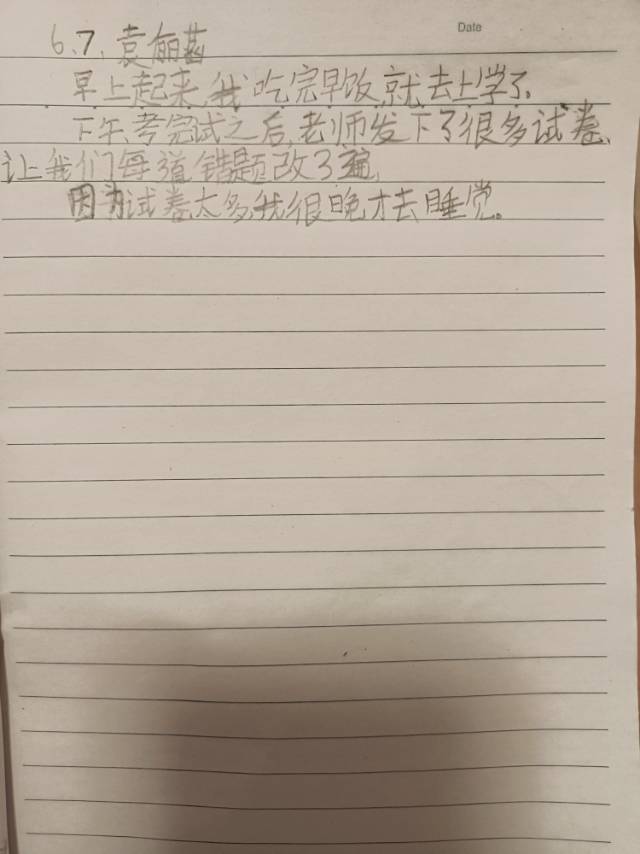 Date
6.7. 袁俪菡
早上起来,我吃完早饭,就去上学了。
下午,考完试之后,老师发下了很多试卷,
让我们每道错题改3遍,
因为试卷太多,我很晚才去睡觉。